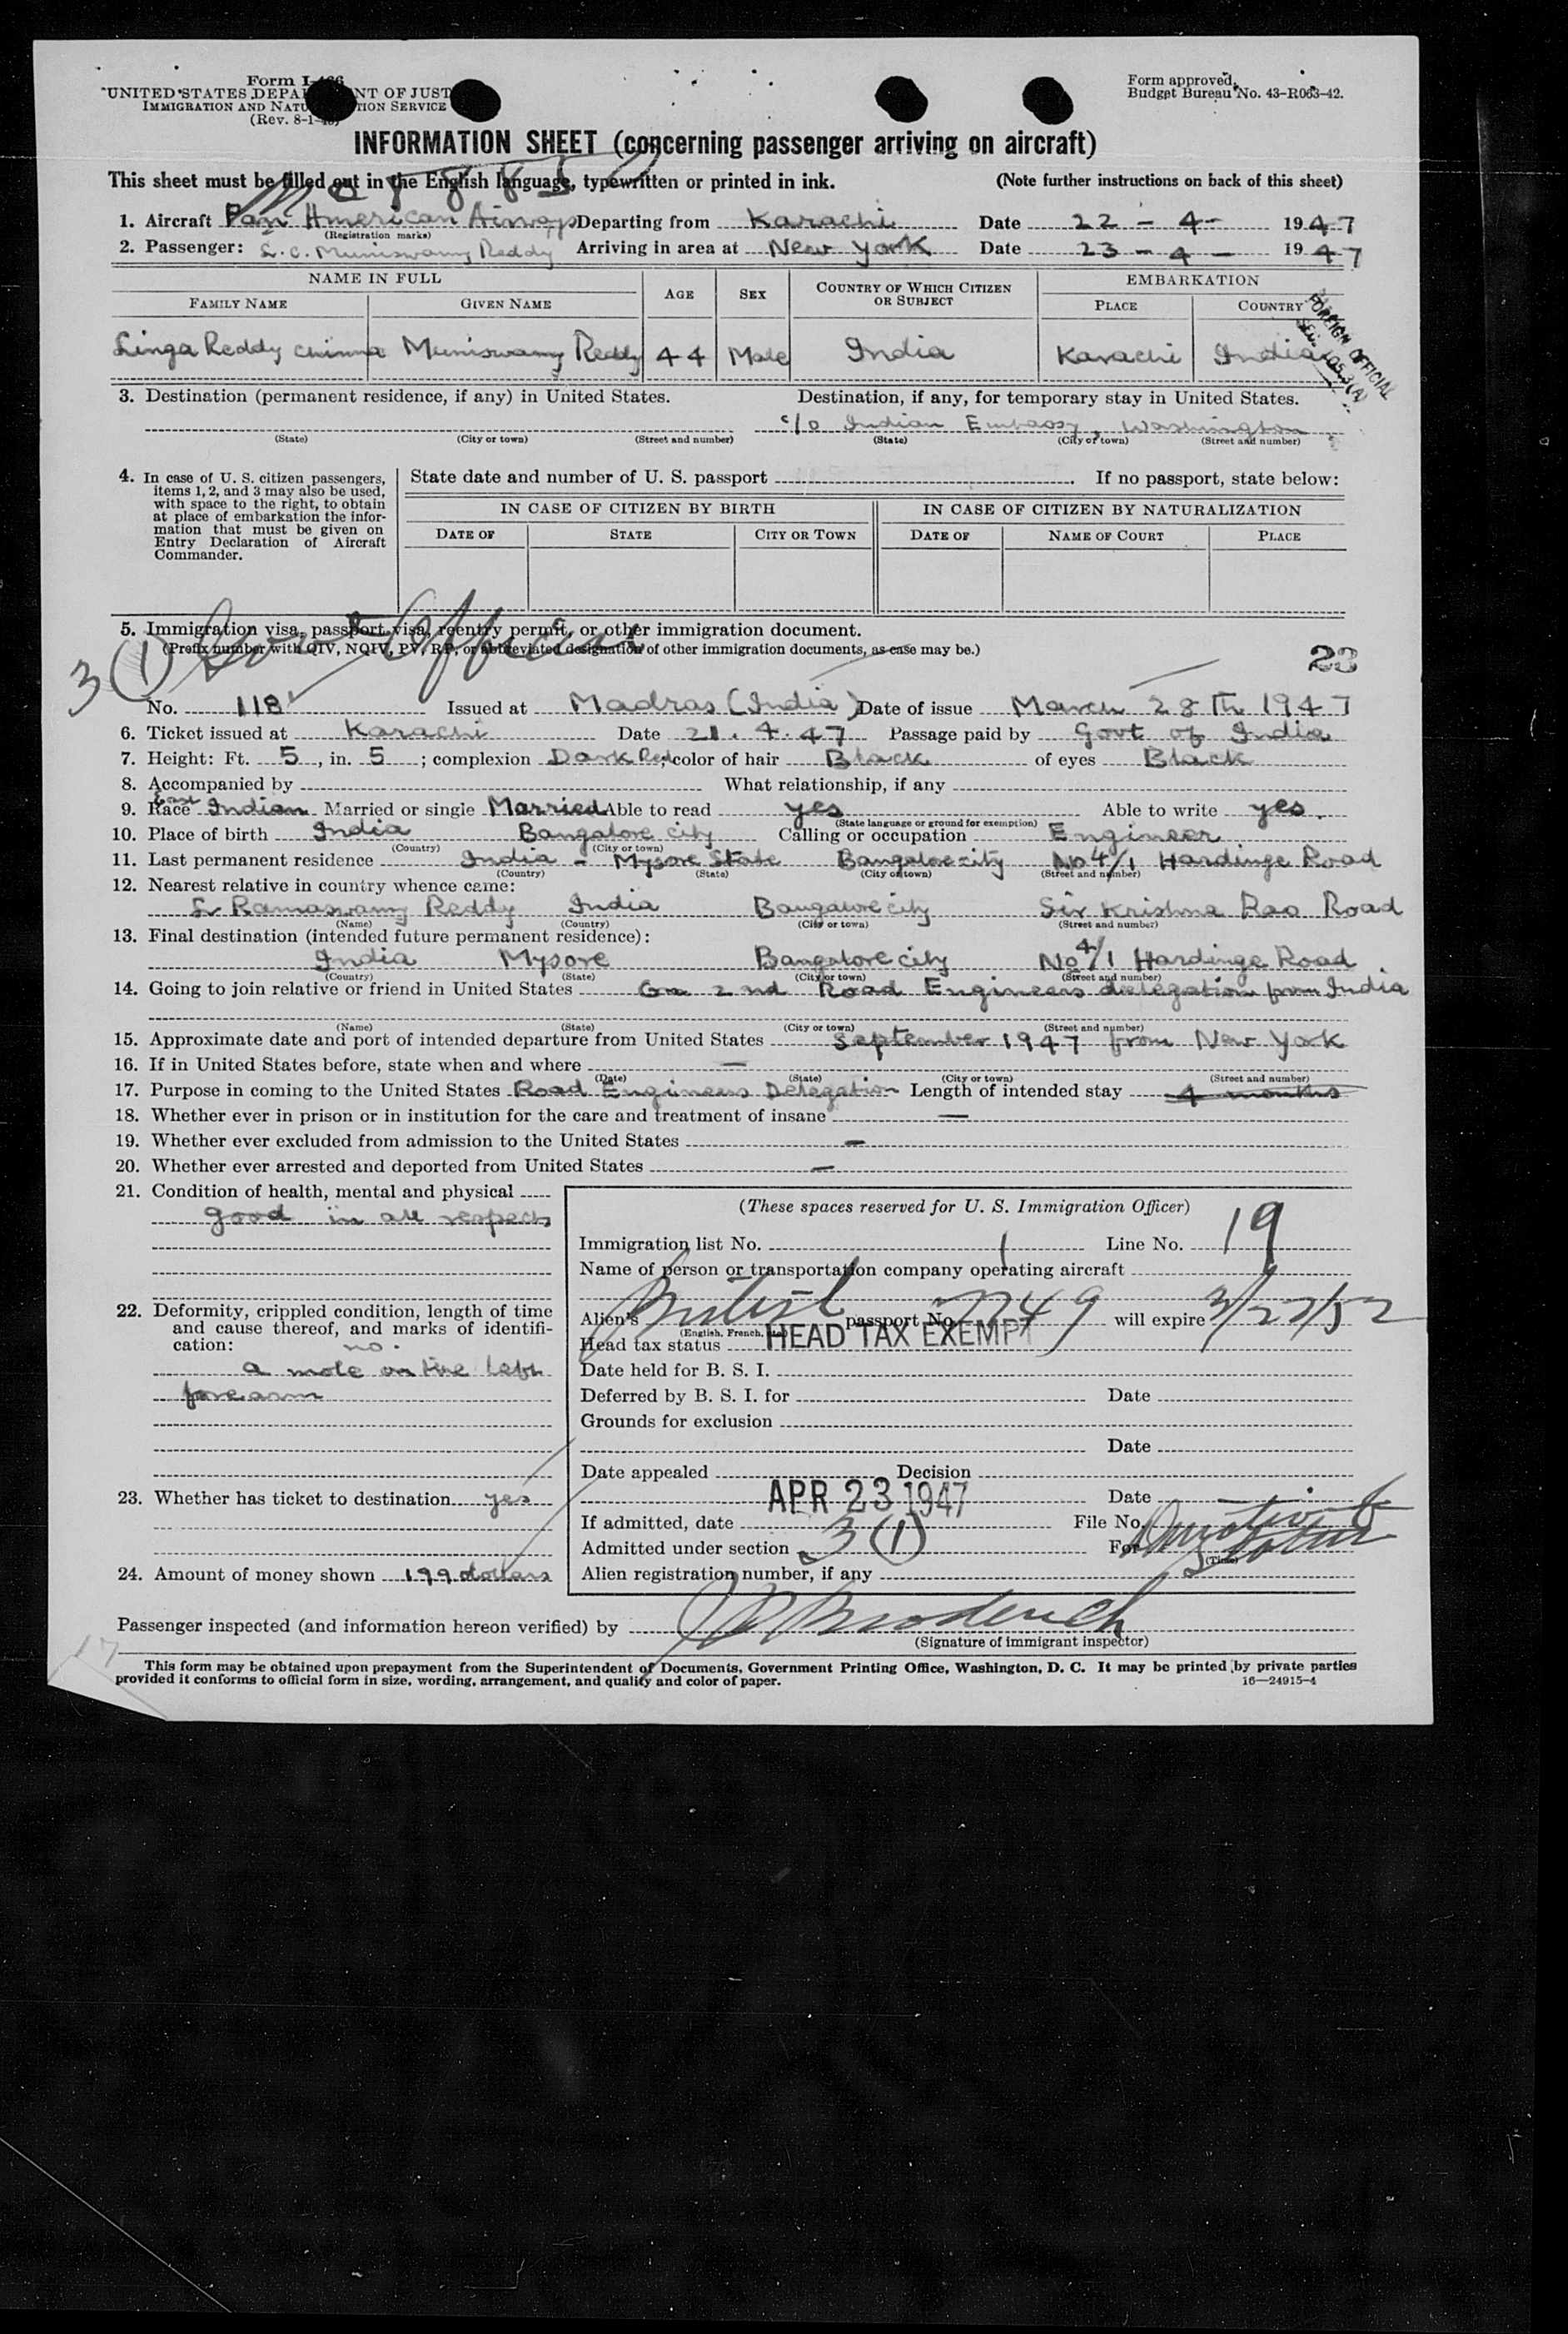 Form I-466
UNITED STATES DEPARTMENT OF JUST
IMMIGRATION AND NATURALIZATION SERVICE
(Rev. 8-1-
Form approved.
Budget Bureau No. 43-R063-42.
INFORMATION SHEET (concerning passenger arriving on aircraft)
This sheet must be filled out in the English language, typewritten or printed in ink. (Note further instructions on back of this sheet)
1. Aircraft Pan American Airways Departing from Karachi Date 22 - 4 - 1947
(Registration marks)
2. Passenger: L. C. Muniswamy Reddy Arriving in area at New York Date 23 - 4 - 1947
NAME IN FULL AGE SEX COUNTRY OF WHICH CITIZEN OR SUBJECT EMBARKATION
FAMILY NAME GIVEN NAME PLACE COUNTRY
Linga Reddy Chinna Muniswamy Reddy 44 Male India Karachi India
FOREIGN OFFICIAL
3. Destination (permanent residence, if any) in United States. Destination, if any, for temporary stay in United States.
c/o Indian Embassy, Washington
(State) (City or town) (Street and number) (State) (City or town) (Street and number)
4. In case of U. S. citizen passengers, items 1, 2, and 3 may also be used, with space to the right, to obtain at place of embarkation the information that must be given on Entry Declaration of Aircraft Commander.
State date and number of U. S. passport . If no passport, state below:
IN CASE OF CITIZEN BY BIRTH IN CASE OF CITIZEN BY NATURALIZATION
DATE OF STATE CITY OR TOWN DATE OF NAME OF COURT PLACE
3(1) Gov't Official
5. Immigration visa, passport visa, reentry permit, or other immigration document.
(Prefix number with QIV, NQIV, PV, RP, or abbreviated designation of other immigration documents, as case may be.)
23
No. 118 Issued at Madras (India) Date of issue March 28th 1947
6. Ticket issued at Karachi Date 21.4.47 Passage paid by Govt of India
7. Height: Ft. 5, in. 5; complexion Dark Red; color of hair Black of eyes Black
8. Accompanied by What relationship, if any
9. Race East Indian Married or single Married Able to read yes Able to write yes.
(State language or ground for exemption)
10. Place of birth India Bangalore city Calling or occupation Engineer
(Country) (City or town)
11. Last permanent residence India - Mysore State Bangalore city No 4/1 Hardinge Road
(Country) (State) (City or town) (Street and number)
12. Nearest relative in country whence came:
L Ramaswamy Reddy India Bangalore city Sir Krishna Rao Road
(Name) (Country) (City or town) (Street and number)
13. Final destination (intended future permanent residence):
India Mysore Bangalore city No 4/1 Hardinge Road
(Country) (State) (City or town) (Street and number)
14. Going to join relative or friend in United States On 2nd Road Engineers delegation from India
(Name) (State) (City or town) (Street and number)
15. Approximate date and port of intended departure from United States September 1947 from New York
16. If in United States before, state when and where —
(Date) (State) (City or town) (Street and number)
17. Purpose in coming to the United States Road Engineers Delegation Length of intended stay 4 months
18. Whether ever in prison or in institution for the care and treatment of insane —
19. Whether ever excluded from admission to the United States —
20. Whether ever arrested and deported from United States —
21. Condition of health, mental and physical
good in all respects
22. Deformity, crippled condition, length of time and cause thereof, and marks of identification: no.
a mole on the left
forearm
23. Whether has ticket to destination yes
24. Amount of money shown 199 dollars
(These spaces reserved for U. S. Immigration Officer)
Immigration list No. 1 Line No. 19
Name of person or transportation company operating aircraft
Alien's British passport No. will expire 3/27/52
(English, French, etc.)
Head tax status HEAD TAX EXEMPT
Date held for B. S. I.
Deferred by B. S. I. for Date
Grounds for exclusion
Date
Date appealed Decision
Date
If admitted, date APR 23 1947 File No.
Admitted under section 3(1) For Duration of Status
(Time)
Alien registration number, if any
Passenger inspected (and information hereon verified) by
(Signature of immigrant inspector)
This form may be obtained upon prepayment from the Superintendent of Documents, Government Printing Office, Washington, D. C. It may be printed by private parties
provided it conforms to official form in size, wording, arrangement, and quality and color of paper. 16—24915-4